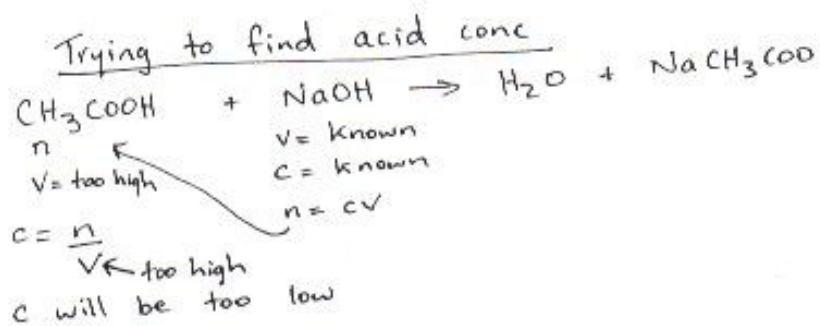 Trying to find acid conc
CH₃COOH + NaOH → H₂O + NaCH₃COO
n
V = too high
V = known
C = known
n = cV
c = n/V ← too high
c will be too low